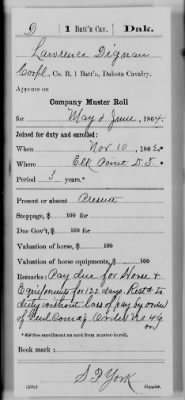 D | 1 Batt'n Cav. | Dak.
Lawrence Dignan
Corpl., Co. B, 1 Batt'n, Dakota Cavalry.
Appears on
Company Muster Roll
for May & June, 1864.
Joined for duty and enrolled:
When Nov. 10, 1862.
Where Elk Point D.T.
Period 3 years.*
Present or absent Present
Stoppage, $ 100 for
Due Gov't, $ 100 for
Valuation of horse, $ 100
Valuation of horse equipments, $ 100
Remarks: Pay due for Horse &
Equipments for 122 days. Rest'd to
duty without loss of pay by order
of Genl Comdg
*See enrollment on card from muster-in roll.
Book mark:
S. F. York
(358) Copyist.